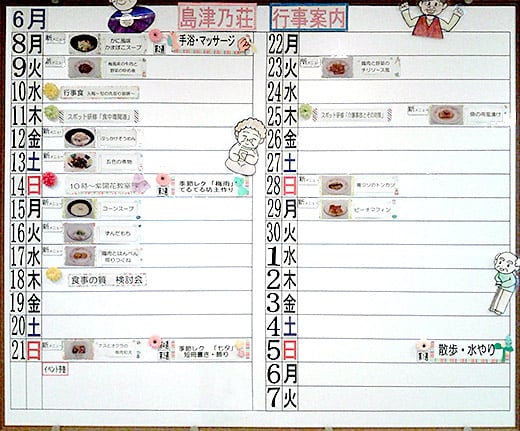 6月
島津乃荘 行事案内
8 月 新メニュー かに風味かまぼこスープ 手浴・マッサージ
9 火 新メニュー 野菜の炒め煮
10 水 行事食
11 木 スポット研修「食中毒関連」
12 金 新メニュー ぶっかけそうめん
13 土 新メニュー 五色の煮物
14 日 10時〜紫陽花教室 季節レク「梅雨」
てるてる坊主作り
15 月 新メニュー コーンスープ
16 火 新メニュー ずんだもち
17 水 新メニュー 鶏肉とはんぺん
照りつくね
18 木 食事の質 検討会
19 金
20 土
21 日 新メニュー ナスとオクラの 季節レク「七夕」
短冊書き・飾り
イベント手巻
22 月
23 火 新メニュー 鶏肉と野菜の
チリソース風
24 水
25 木 スポット研修 新メニュー 魚の南蛮漬け
26 金
27 土
28 日 新メニュー 青ジソのトンカツ
29 月 新メニュー ピーチマフィン
30 火
1 水
2 木
3 金
4 土
5 日 散歩・水やり
6 月
7 火